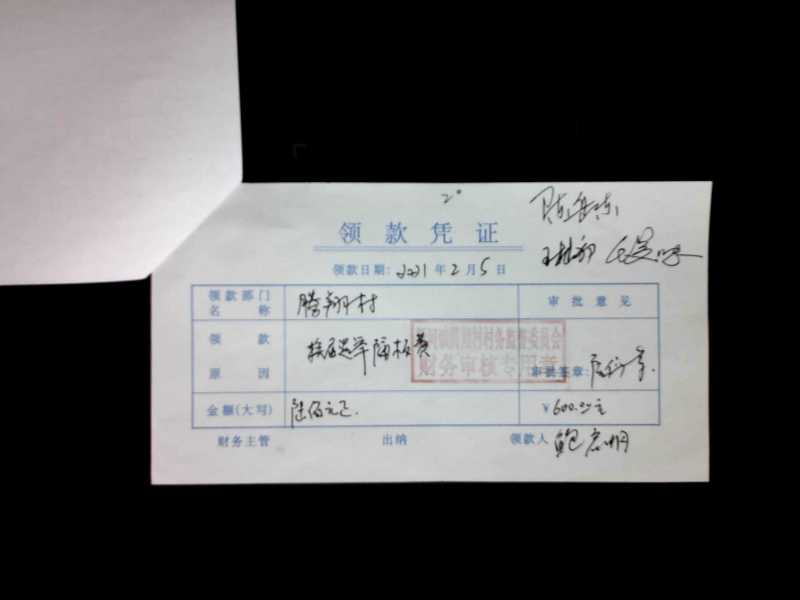 2°
领款凭证
领款日期：2021年2月5日
领款部门名称 腾翔村 审批意见
领款原因 换届选举隔板费 审批签章：
村务监督委员会
财务审核专用章
金额(大写) 陆佰元正. ￥600.00元
财务主管 出纳 领款人 鲍